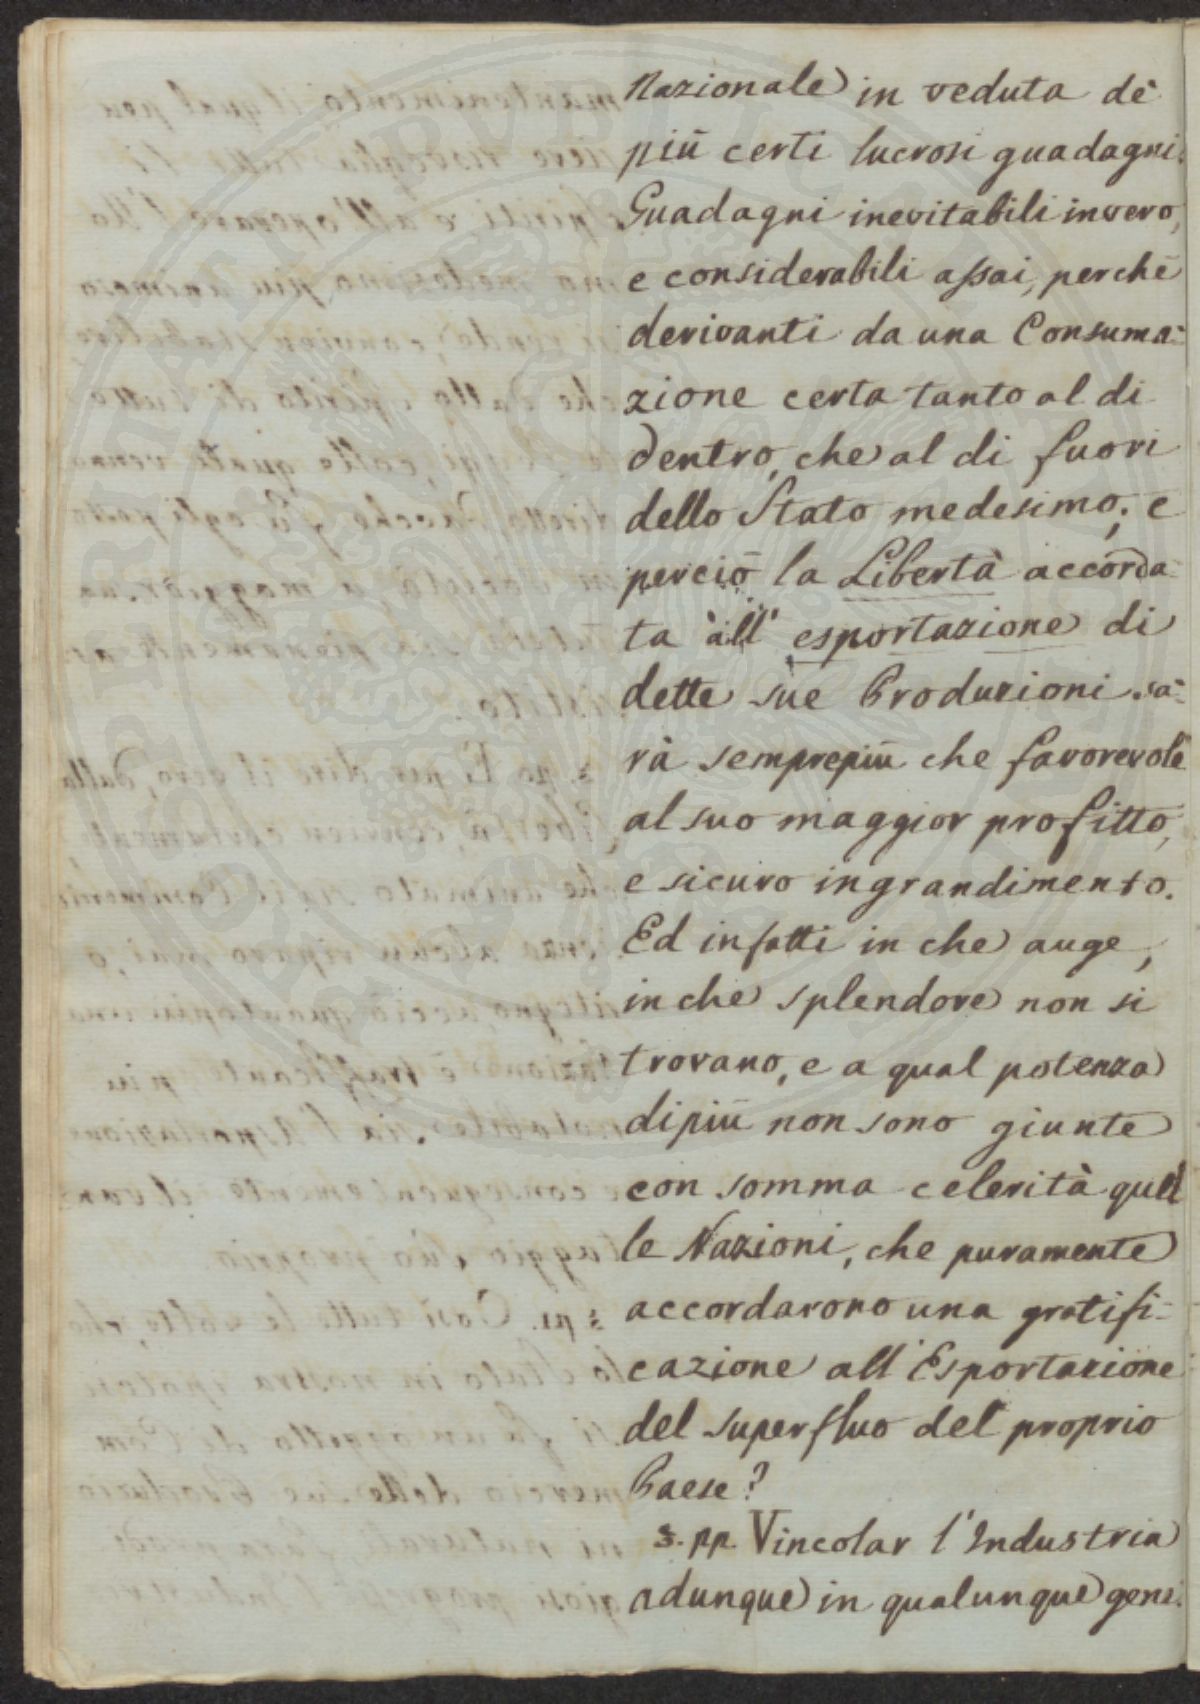 Nazionale in veduta de'
più certi lucrosi guadagni.
Guadagni inevitabili invero,
e considerabili assai, perchè
derivanti da una Consuma-
zione certa tanto al di
dentro, che al di fuori
dello Stato medesimo; e
perciò la Libertà accorda-
ta all' esportazione di
dette sue Produzioni sa-
rà semprepiù che favorevole
al suo maggior profitto,
e sicuro ingrandimento.
Ed infatti in che auge,
in che splendore non si
trovano, e a qual potenza
dipiù non sono giunte
con somma celerità quel
le Nazioni, che puramente
accordarono una gratifi-
cazione all' Esportazione
del superfluo del proprio
Paese?
Vincolar l'Industria
adunque in qualunque gene-